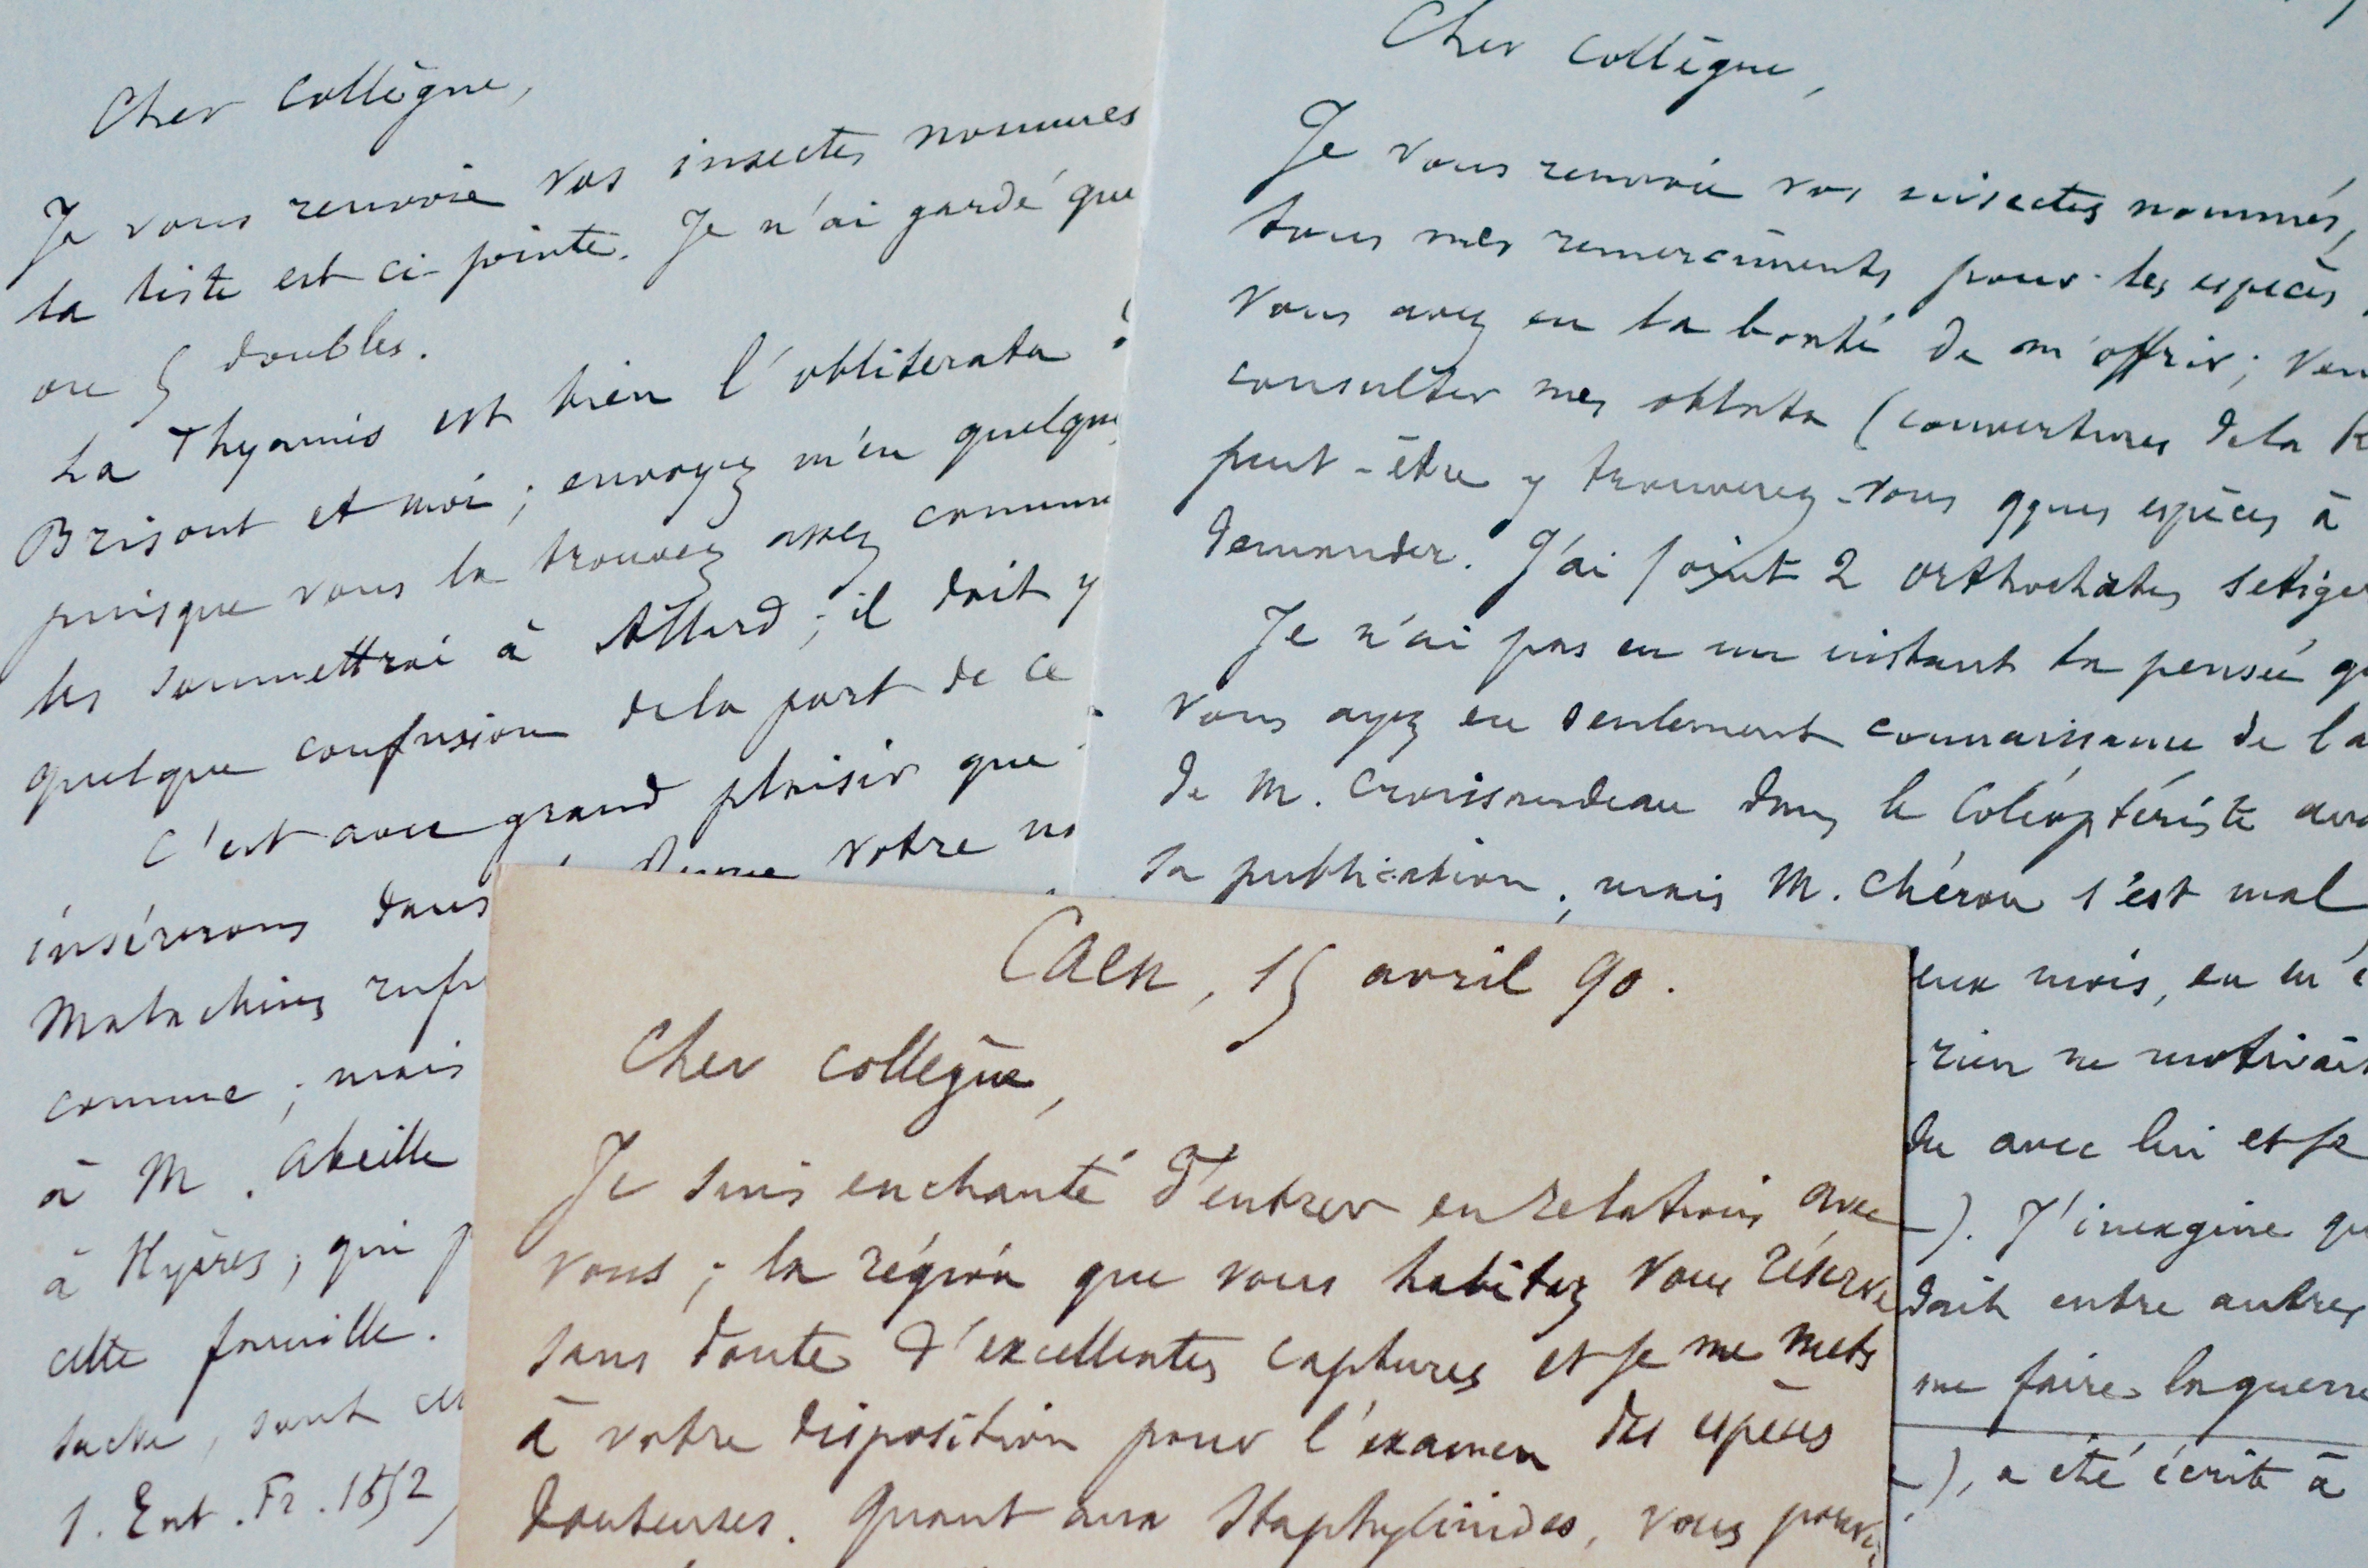 Cher collègue,
Je vous renvoie vos insectes nommés
la liste est ci-jointe. Je n'ai gardé que
ou 5 doubles.
La Thyamis est bien l'obliterata
Brisout et moi; envoyez m'en quelque
puisque vous la trouvez assez commune
les soumettrai à Allard; il doit y
quelque confusion de la part de ce
C'est avec grand plaisir que
insérerons dans Revue votre no
Malachius rufi
comme; mais
à M. Abeille
à Hyères, qui p
cette famille.
tache, sont
s. Ent. Fr. 1852,
Cher collègue,
Je vous renvoie vos insectes nommés,
tous mes remerciments pour les espèces
vous avez eu la bonté de m'offrir; veu
consulter mes oblata (couvertures de la R
peut-être y trouverez-vous qques espèces à
demander. J'ai joint 2 orthochaetes setiger
Je n'ai pas eu un instant la pensée qu
vous ayez eu seulement connaissance de la
de M. Croissandeau dans le Coléoptériste ava
sa publication; mais M. Chéron s'est mal
eux mois, en m'e
rien ne motivait
du avec lui et je
). J'imagine qu
dait entre autres
me faire la guerre
), a été écrite à
Caen, 15 avril 90.
Cher collègue,
Je suis enchanté d'entrer en relations avec
vous; la région que vous habitez vous réserve
sans doute d'excellentes captures et je me mets
à votre disposition pour l'examen des espèces
douteuses. Quant aux Staphylinides, vous pouvez